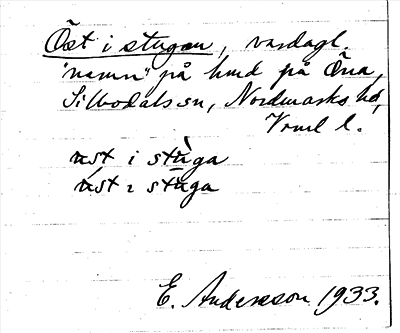 Öst i stugan, vardagl.
"namn" på hmd på Öna,
Silbodals sn, Nordmarks hd,
Vrml l.
ust i stùga
úst ɩ stuga
E. Andersson 1933.